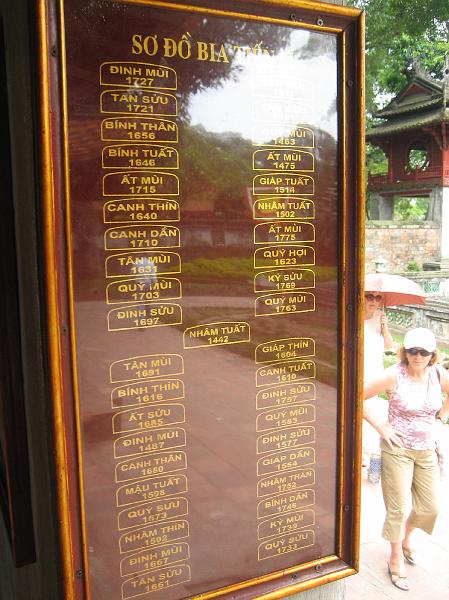 SƠ ĐỒ BIA TIẾN
ĐINH MÙI
1727
TÂN SỬU
1721
BÍNH THÂN
1656
BÍNH TUẤT
1646
ẤT MÙI
1715
CANH THÌN
1640
CANH DẦN
1710
TÂN MÙI
1631
QUÝ MÙI
1703
ĐINH SỬU
1697
MÙI
1463
ẤT MÙI
1475
GIÁP TUẤT
1514
NHÂM TUẤT
1502
ẤT MÙI
1775
QUÝ HỢI
1623
KỶ SỬU
1769
QUÝ MÙI
1763
NHÂM TUẤT
1442
TÂN MÙI
1691
BÍNH THÌN
1616
ẤT SỬU
1685
ĐINH MÙI
1487
CANH THÂN
1680
MẬU TUẤT
1598
QUÝ SỬU
1673
NHÂM THÌN
1592
ĐINH MÙI
1667
TÂN SỬU
1661
GIÁP THÌN
1604
CANH TUẤT
1610
ĐINH SỬU
1757
QUÝ MÙI
1583
ĐINH SỬU
1577
GIÁP DẦN
1554
NHÂM THÂN
1752
BÍNH DẦN
1746
KỶ MÙI
1739
QUÝ SỬU
1733